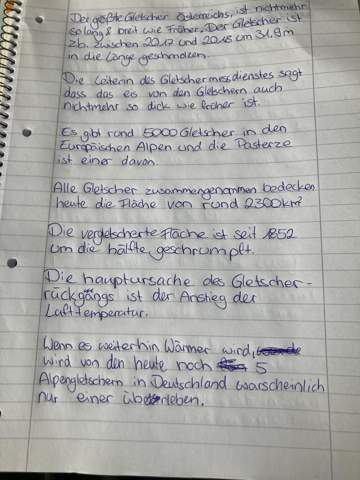 Der größte Gletscher Österreichs, ist nichtmehr
so lang & breit wie früher. Der Gletscher ist
z.b. zwischen 2017 und 2018 um 31,9m
in die Länge geschmolzen.
Die Leiterin des Gletschermesdienstes sagt
dass das eis von den Gletschern auch
nichtmehr so dick wie früher ist.
Es gibt rund 5000 Gletscher in den
Europäischen Alpen und die Pasterze
ist einer davon.
Alle Gletscher zusammengenommen bedecken
heute die Fläche von rund 2300 km²
Die vergletscherte Fläche ist seit 1852
um die hälfte geschrumpft.
Die hauptursache des Gletscher-
rückgangs ist der Anstieg der
Lufttemperatur.
Wenn es weiterhin Wärmer wird,
wird von den heute noch 5
Alpengletschern in Deutschland warscheinlich
nur einer überleben.